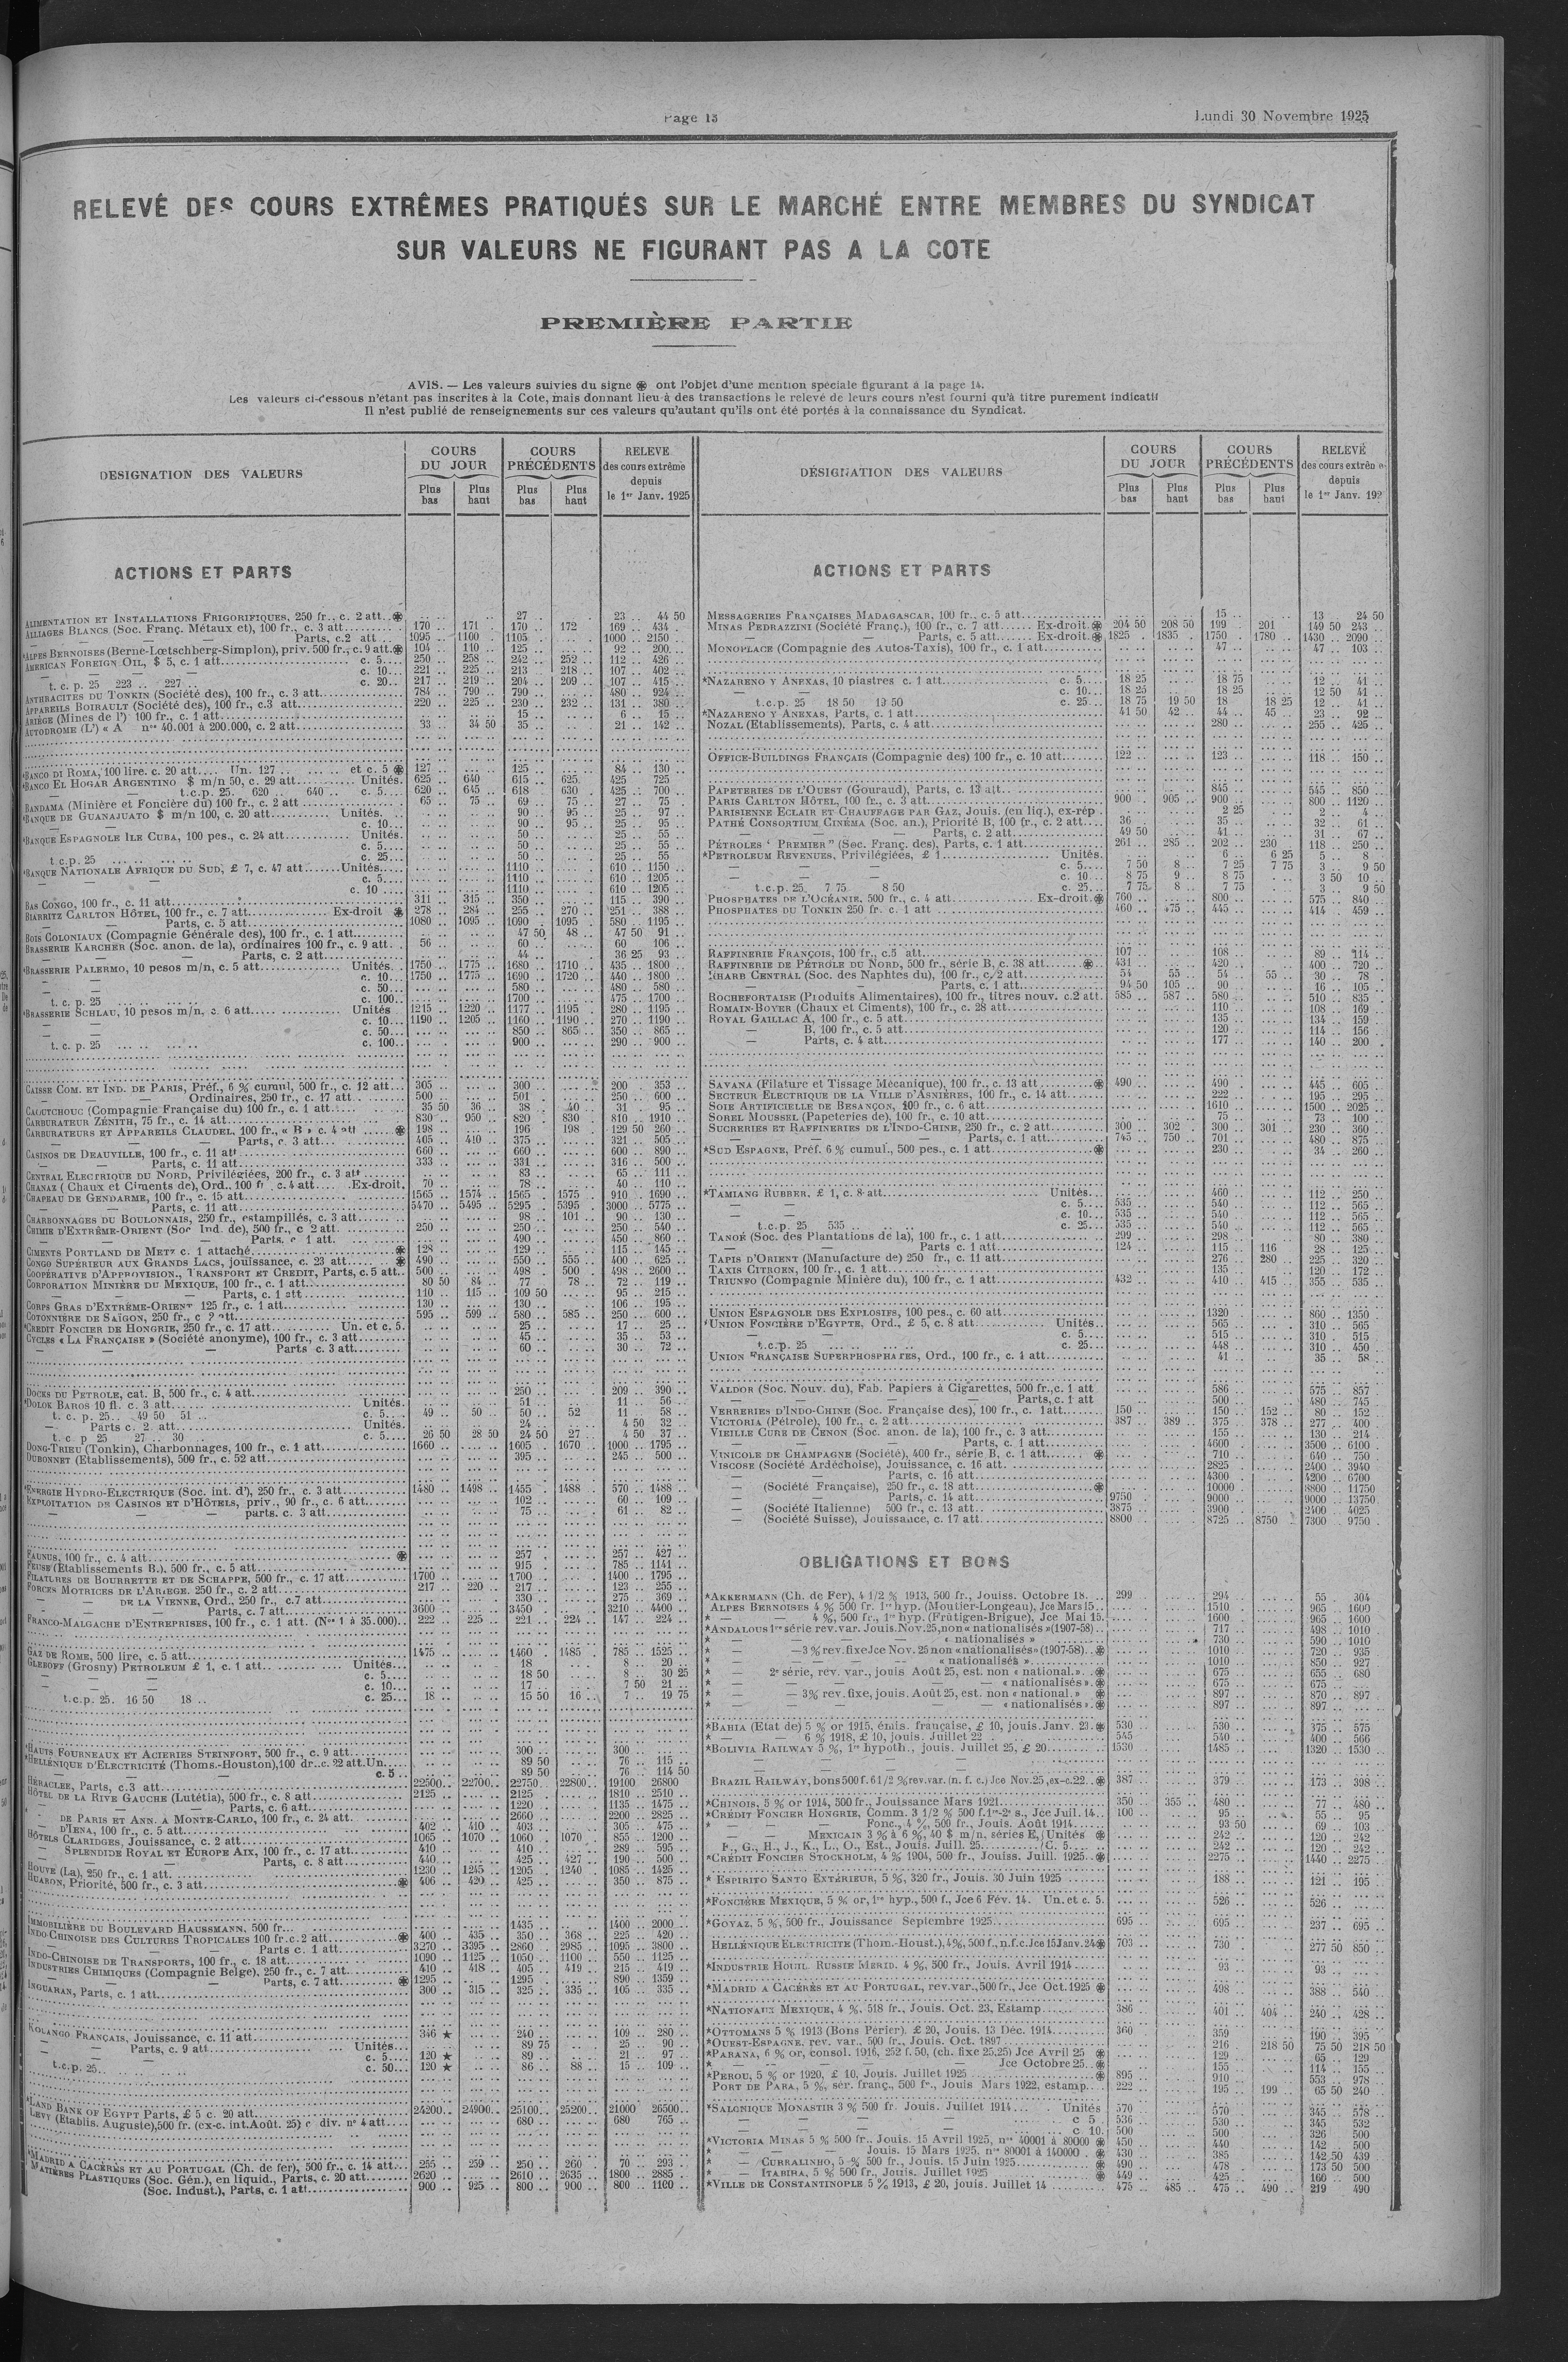 Page 13
Lundi 30 Novembre 1925
RELEVÉ DES COURS EXTRÊMES PRATIQUÉS SUR LE MARCHÉ ENTRE MEMBRES DU SYNDICAT
SUR VALEURS NE FIGURANT PAS A LA COTE
PREMIÈRE PARTIE
AVIS. — Les valeurs suivies du signe ֍ ont l'objet d'une mention spéciale figurant à la page 14.
Les valeurs ci-dessous n'étant pas inscrites à la Cote, mais donnant lieu à des transactions le relevé de leurs cours n'est fourni qu'à titre purement indicatif
Il n'est publié de renseignements sur ces valeurs qu'autant qu'ils ont été portés à la connaissance du Syndicat.
DESIGNATION DES VALEURS
COURS DU JOUR
Plus bas
Plus haut
COURS PRÉCÉDENTS
Plus bas
Plus haut
RELEVE des cours extrême depuis le 1er Janv. 1925
ACTIONS ET PARTS
ALIMENTATION ET INSTALLATIONS FRIGORIFIQUES, 250 fr., c. 2 att. ֍ 27 .. 23 .. 44 50
ALLIAGES BLANCS (Soc. Franç. Métaux et), 100 fr., c. 3 att. 170 .. 171 .. 170 .. 172 .. 169 .. 434 ..
— — Parts, c. 2 att 1095 .. 1100 .. 1105 .. 1000 .. 2150 ..
*ALPES BERNOISES (Berne-Lœtschberg-Simplon), priv. 500 fr., c. 9 att. ֍ 104 .. 110 .. 125 .. 92 .. 200 ..
AMERICAN FOREIGN OIL, $ 5, c. 1 att. c. 5 250 .. 258 .. 242 .. 252 .. 112 .. 426 ..
c. 10 221 .. 225 .. 213 .. 218 .. 107 .. 402 ..
t. c. p. 25 223 .. 227 .. c. 20 217 .. 219 .. 204 .. 209 .. 107 .. 415 ..
ANTHRACITES DU TONKIN (Société des), 100 fr., c. 3 att. 784 .. 790 .. 790 .. 480 .. 924 ..
APPAREILS BOIRAULT (Société des), 100 fr., c. 3 att. 220 .. 225 .. 230 .. 232 .. 131 .. 380 ..
ARIÈGE (Mines de l') 100 fr., c. 1 att. 15 .. 6 .. 15 ..
AUTODROME (L') « A nos 40.001 à 200.000, c. 2 att. 33 .. 34 50 35 .. 21 .. 142 ..
*BANCO DI ROMA, 100 lire. c. 20 att. Un. 127 .. et c. 5 ֍ 127 .. 125 .. 84 .. 130 ..
*BANCO EL HOGAR ARGENTINO $ m/n 50, c. 29 att. Unités. 625 .. 640 .. 615 .. 625 .. 425 .. 725 ..
t.c.p. 25. 620 .. 640 .. c. 5 620 .. 645 .. 618 .. 630 .. 425 .. 700 ..
BANDAMA (Minière et Foncière du) 100 fr., c. 2 att 65 .. 75 .. 69 .. 75 .. 27 .. 75 ..
*BANQUE DE GUANAJUATO $ m/n 100, c. 20 att. Unités. 90 .. 95 .. 25 .. 97 ..
c. 10 90 .. 95 .. 25 .. 95 ..
*BANQUE ESPAGNOLE ILE CUBA, 100 pes., c. 24 att. Unités. 50 .. 25 .. 55 ..
c. 5 50 .. 25 .. 55 ..
t.c.p. 25 c. 25 50 .. 25 .. 55 ..
*BANQUE NATIONALE AFRIQUE DU SUD, £ 7, c. 47 att. Unités 1110 .. 610 .. 1150 ..
c. 5 1110 .. 610 .. 1205 ..
c. 10 1110 .. 610 .. 1205 ..
BAS CONGO, 100 fr., c. 11 att. 311 .. 315 .. 350 .. 115 .. 390 ..
BIARRITZ CARLTON HÔTEL, 100 fr., c. 7 att. Ex-droit ֍ 278 .. 284 .. 255 .. 270 .. 251 .. 388 ..
— Parts, c. 5 att. 1080 .. 1095 .. 1090 .. 1095 .. 580 .. 1195 ..
BOIS COLONIAUX (Compagnie Générale des), 100 fr., c. 1 att. 47 50 48 .. 47 50 91 ..
BRASSERIE KARCHER (Soc. anon. de la), ordinaires 100 fr., c. 9 att. 56 .. 60 .. 60 .. 106 ..
— Parts, c. 2 att. 44 .. 36 25 93 ..
*BRASSERIE PALERMO, 10 pesos m/n, c. 5 att. Unités. 1750 .. 1775 .. 1680 .. 1710 .. 435 .. 1800 ..
c. 10 1750 .. 1775 .. 1690 .. 1720 .. 440 .. 1800 ..
c. 50 580 .. 480 .. 580 ..
t. c. p. 25 c. 100 1700 .. 475 .. 1700 ..
*BRASSERIE SCHLAU, 10 pesos m/n, c. 6 att. Unités 1215 .. 1220 .. 1177 .. 1195 .. 280 .. 1195 ..
c. 10 1190 .. 1205 .. 1160 .. 1190 .. 270 .. 1190 ..
c. 50 850 .. 865 .. 350 .. 865 ..
t. c. p. 25 c. 100 900 .. 290 .. 900 ..
CAISSE COM. ET IND. DE PARIS, Préf., 6 % cumul, 500 fr., c. 12 att 305 .. 300 .. 200 .. 353 ..
— Ordinaires, 250 fr., c. 17 att 500 .. 501 .. 250 .. 600 ..
CAOUTCHOUC (Compagnie Française du) 100 fr., c. 1 att. 35 50 36 .. 38 .. 40 .. 31 .. 95 ..
CARBURATEUR ZÉNITH, 75 fr., c. 14 att. 830 .. 950 .. 820 .. 830 .. 810 .. 1910 ..
CARBURATEURS ET APPAREILS CLAUDEL, 100 fr., « B » c. 4 att ֍ 198 .. 196 .. 198 .. 129 50 260 ..
— Parts, c. 3 att. 405 .. 410 .. 375 .. 321 .. 505 ..
CASINOS DE DEAUVILLE, 100 fr., c. 11 att 660 .. 660 .. 600 .. 890 ..
— Parts, c. 11 att. 333 .. 331 .. 316 .. 500 ..
CENTRAL ELECTRIQUE DU NORD, Privilégiées, 200 fr., c. 3 att 83 .. 65 .. 111 ..
CHANAX (Chaux et Ciments de), Ord., 100 fr., c. 4 att. Ex-droit. 70 .. 78 .. 40 .. 110 ..
CHAPEAU DE GENDARME, 100 fr., c. 15 att. 1565 .. 1574 .. 1565 .. 1575 .. 910 .. 1690 ..
— Parts, c. 11 att. 5470 .. 5495 .. 5295 .. 5395 .. 3000 .. 5775 ..
CHARBONNAGES DU BOULONNAIS, 250 fr., estampillés, c. 3 att. 98 .. 101 .. 90 .. 130 ..
CHIMIE D'EXTRÊME-ORIENT (Soc Ind. de), 500 fr., c 2 att. 250 .. 250 .. 250 .. 540 ..
— Parts, c 1 att. 490 .. 450 .. 860 ..
CIMENTS PORTLAND DE METZ c. 1 attaché ֍ 128 .. 129 .. 115 .. 145 ..
CONGO SUPÉRIEUR AUX GRANDS LACS, jouissance, c. 23 att. ֍ 490 .. 550 .. 555 .. 400 .. 625 ..
COOPÉRATIVE D'APPROVISION., TRANSPORT ET CREDIT, Parts, c. 5 att. 500 .. 498 .. 500 .. 498 .. 2600 ..
CORPORATION MINIÈRE DU MEXIQUE, 100 fr., c. 1 att. 80 50 84 .. 77 .. 78 .. 72 .. 119 ..
— Parts, c. 1 att 110 .. 115 .. 109 50 95 .. 215 ..
CORPS GRAS D'EXTRÊME-ORIENT 125 fr., c. 1 att. 130 .. 130 .. 106 .. 195 ..
COTONNIÈRE DE SAÏGON, 250 fr., c 2 att. 595 .. 599 .. 580 .. 585 .. 250 .. 600 ..
*CRÉDIT FONCIER DE HONGRIE, 250 fr., c. 17 att. Un. et c. 5. 25 .. 17 .. 25 ..
CYCLES « LA FRANÇAISE » (Société anonyme), 100 fr., c. 3 att. 45 .. 35 .. 53 ..
— Parts c. 3 att. 60 .. 30 .. 72 ..
DOCKS DU PETROLE, cat. B, 500 fr., c. 4 att. 250 .. 209 .. 390 ..
*DOLOK BAROS 10 fl. c. 3 att. Unités. 51 .. 11 .. 56 ..
t. c. p. 25.. 49 50 51 .. c. 5 49 .. 50 .. 50 .. 52 .. 11 .. 58 ..
— Parts c. 2 att. Unités. 24 .. 4 50 32 ..
t. c p 25 27 .. 30 .. c. 5 26 50 28 50 24 50 27 .. 4 50 37 ..
DONG-TRIEU (Tonkin), Charbonnages, 100 fr., c. 1 att. 1660 .. 1605 .. 1670 .. 1000 .. 1795 ..
DUBONNET (Etablissements), 500 fr., c. 52 att. 395 .. 245 .. 500 ..
*ENERGIE HYDRO-ELECTRIQUE (Soc. int. d'), 250 fr., c. 3 att. 1480 .. 1498 .. 1455 .. 1488 .. 570 .. 1488 ..
EXPLOITATION DE CASINOS ET D'HÔTELS, priv., 90 fr., c. 6 att. 102 .. 60 .. 109 ..
— parts. c. 3 att. 75 .. 61 .. 82 ..
FAUNUS, 100 fr., c. 4 att. ֍ 257 .. 257 .. 427 ..
FEUSE (Etablissements B.), 500 fr., c. 5 att. 915 .. 785 .. 1141 ..
FILATURES DE BOURRETTE ET DE SCHAPPE, 500 fr., c. 17 att. 1700 .. 1700 .. 1400 .. 1795 ..
FORCES MOTRICES DE L'ARIEGE. 250 fr., c. 2 att. 217 .. 220 .. 217 .. 123 .. 255 ..
— DE LA VIENNE, Ord., 250 fr., c. 7 att. 330 .. 275 .. 369 ..
— Parts, c. 7 att. 3600 .. 3450 .. 3210 .. 4400 ..
FRANCO-MALGACHE D'ENTREPRISES, 100 fr., c. 1 att. (Nos 1 à 35.000) 222 .. 225 .. 221 .. 224 .. 147 .. 224 ..
GAZ DE ROME, 500 lire, c. 5 att. 1475 .. 1460 .. 1485 .. 785 .. 1525 ..
GLEBOFF (Grosny) PETROLEUM £ 1, c. 1 att. Unités 18 .. 8 .. 20 ..
c. 5 18 50 8 .. 30 25
c. 10 17 .. 7 50 21 ..
t.c.p. 25. 16 50 18 .. c. 25 18 .. 15 50 16 .. 7 .. 19 75
*HAUTS FOURNEAUX ET ACIERIES STEINFORT, 500 fr., c. 9 att. 300 .. 300 ..
*HELLÉNIQUE D'ELECTRICITÉ (Thoms.-Houston), 100 dr. c. 22 att. Un. 89 50 76 .. 115 ..
c. 5 89 50 76 .. 114 50
HÉRACLEE, Parts, c. 3 att. 22500 .. 22700 .. 22750 .. 22800 .. 19100 26800
HÔTEL DE LA RIVE GAUCHE (Lutétia), 500 fr., c. 8 att. 2125 .. 2125 .. 1810 .. 2510 ..
— Parts, c. 6 att. 1220 .. 1135 .. 1475 ..
— DE PARIS ET ANN. A MONTE-CARLO, 100 fr., c. 24 att. 2660 .. 2200 .. 2825 ..
— D'IENA, 100 fr., c. 5 att. 402 .. 410 .. 403 .. 305 .. 475 ..
HÔTELS CLARIDGES, Jouissance, c. 2 att. 1065 .. 1070 .. 1060 .. 1070 .. 855 .. 1200 ..
— SPLENDIDE ROYAL ET EUROPE AIX, 100 fr., c. 17 att. 410 .. 410 .. 289 .. 595 ..
— Parts, c. 8 att. 440 .. 425 .. 427 .. 190 .. 500 ..
HOUVE (La), 250 fr., c. 1 att. 1230 .. 1245 .. 1205 .. 1240 .. 1085 .. 1425 ..
HUARON, Priorité, 500 fr., c. 3 att. ֍ 406 .. 420 .. 425 .. 350 .. 875 ..
IMMOBILIÈRE DU BOULEVARD HAUSSMANN, 500 fr. 1435 .. 1400 .. 2000 ..
INDO-CHINOISE DES CULTURES TROPICALES 100 fr. c. 2 att ֍ 400 .. 435 .. 350 .. 368 .. 225 .. 420 ..
— Parts c. 1 att. 3270 .. 3395 .. 2860 .. 2985 .. 1095 .. 3800 ..
INDO-CHINOISE DE TRANSPORTS, 100 fr., c. 18 att. 1090 .. 1125 .. 1050 .. 1100 .. 550 .. 1125 ..
INDUSTRIES CHIMIQUES (Compagnie Belge), 250 fr., c. 7 att. 410 .. 418 .. 405 .. 419 .. 215 .. 419 ..
— Parts, c. 7 att. ֍ 1295 .. 1295 .. 890 .. 1359 ..
INGUARAN, Parts, c. 1 att. 300 .. 315 .. 325 .. 335 .. 105 .. 335 ..
KOLANGO FRANÇAIS, Jouissance, c. 11 att. 346 ★ 240 .. 109 .. 280 ..
— Parts, c. 9 att. Unités 89 75 25 .. 90 ..
c. 5 120 ★ 89 .. 21 .. 97 ..
t.c.p. 25.. c. 50 120 ★ 86 .. 88 .. 15 .. 109 ..
*LAND BANK OF EGYPT Parts, £ 5 c. 20 att. 24200 .. 24900 .. 25100 .. 25200 .. 21000 26500 ..
LEVY (Etablis. Auguste), 500 fr. (ex-c. int. Août. 25) c div. no 4 att. 680 .. 680 .. 765 ..
*MADRID A CACÉRÈS ET AU PORTUGAL (Ch. de fer), 500 fr., c. 14 att. 255 .. 259 .. 250 .. 260 .. 70 .. 293 ..
MATIÈRES PLASTIQUES (Soc. Gén.), en liquid., Parts, c. 20 att. 2620 .. 2610 .. 2635 .. 1800 .. 2885 ..
(Soc. Indust.), Parts, c. 1 att. 900 .. 925 .. 800 .. 900 .. 800 .. 1100 ..
DÉSIGNATION DES VALEURS
COURS DU JOUR
Plus bas
Plus haut
COURS PRÉCÉDENTS
Plus bas
Plus haut
RELEVÉ des cours extrêm depuis le 1er Janv. 19
ACTIONS ET PARTS
MESSAGERIES FRANÇAISES MADAGASCAR, 100 fr., c. 5 att. 15 .. 13 .. 24 50
MINAS PEDRAZZINI (Société Franç.), 100 fr., c. 7 att. Ex-droit. ֍ 204 50 208 50 199 .. 201 .. 149 50 243 ..
— Parts, c. 5 att. Ex-droit. ֍ 1825 .. 1835 .. 1750 .. 1780 .. 1430 .. 2090 ..
MONOPLACE (Compagnie des Autos-Taxis), 100 fr., c. 1 att. 47 .. 47 .. 103 ..
*NAZARENO Y ANEXAS, 10 piastres c. 1 att. c. 5 18 25 18 75 12 .. 41 ..
c. 10 18 25 18 25 12 50 41 ..
t.c.p. 25 18 50 19 50 c. 25 18 75 19 50 18 .. 18 25 12 .. 41 ..
*NAZARENO Y ANEXAS, Parts, c. 1 att. 41 50 42 .. 44 .. 45 .. 23 .. 92 ..
NOZAL (Etablissements), Parts, c. 4 att. 280 .. 255 .. 425 ..
OFFICE-BUILDINGS FRANÇAIS (Compagnie des) 100 fr., c. 10 att. 122 .. 123 .. 118 .. 150 ..
PAPETERIES DE L'OUEST (Gouraud), Parts, c. 13 att. 845 .. 545 .. 850 ..
PARIS CARLTON HÔTEL, 100 fr., c. 3 att. 900 .. 905 .. 900 .. 800 .. 1120 ..
PARISIENNE ECLAIR ET CHAUFFAGE PAR GAZ, Jouis. (en liq.), ex-rép. 2 25 2 .. 4 ..
PATHÉ CONSORTIUM CINÉMA (Soc. an.), Priorité B, 100 fr., c. 2 att. 36 .. 35 .. 32 .. 61 ..
— Parts, c. 2 att. 49 50 41 .. 31 .. 67 ..
PÉTROLES " PREMIER " (Soc. Franç. des), Parts, c. 1 att. 261 .. 285 .. 202 .. 230 .. 118 .. 250 ..
*PETROLEUM REVENUES, Privilégiées, £ 1 Unités. 6 .. 6 25 5 .. 8 ..
c. 5 7 50 8 .. 7 25 7 75 3 .. 9 50
c. 10 8 75 9 .. 8 75 3 50 10 ..
t.c.p. 25 7 75 8 50 c. 25 7 75 8 .. 7 75 3 .. 9 50
PHOSPHATES DE L'OCÉANIE, 500 fr., c. 4 att. Ex-droit. ֍ 760 .. 800 .. 575 .. 840 ..
PHOSPHATES DU TONKIN 250 fr. c. 1 att 460 .. 475 .. 445 .. 414 .. 459 ..
RAFFINERIE FRANÇOIS, 100 fr., c. 5 att. 107 .. 108 .. 89 .. 114 ..
RAFFINERIE DE PÉTROLE DU NORD, 500 fr., série B, c. 38 att. ֍ 431 .. 420 .. 400 .. 720 ..
KHARB CENTRAL (Soc. des Naphtes du), 100 fr., c. 2 att. 54 .. 55 .. 54 .. 55 .. 30 .. 78 ..
— Parts, c. 1 att. 94 50 105 .. 90 .. 16 .. 105 ..
ROCHEFORTAISE (Produits Alimentaires), 100 fr., titres nouv. c. 2 att. 585 .. 587 .. 580 .. 510 .. 835 ..
ROMAIN-BOYER (Chaux et Ciments), 100 fr., c. 28 att. 110 .. 108 .. 169 ..
ROYAL GAILLAC A, 100 fr., c. 5 att. 135 .. 134 .. 159 ..
— B, 100 fr., c. 5 att. 120 .. 114 .. 156 ..
— Parts, c. 4 att. 177 .. 140 .. 200 ..
SAVANA (Filature et Tissage Mécanique), 100 fr., c. 13 att ֍ 490 .. 490 .. 445 .. 605 ..
SECTEUR ELECTRIQUE DE LA VILLE D'ASNIÈRES, 100 fr., c. 14 att. 222 .. 195 .. 295 ..
SOIE ARTIFICIELLE DE BESANÇON, 100 fr., c. 6 att. 1610 .. 1500 .. 2025 ..
SOREL MOUSSEL (Papeteries de), 100 fr., c. 10 att. 75 .. 73 .. 100 ..
SUCRERIES ET RAFFINERIES DE L'INDO-CHINE, 250 fr., c. 2 att. 300 .. 302 .. 300 .. 301 .. 230 .. 360 ..
— Parts, c. 1 att. 745 .. 750 .. 701 .. 480 .. 875 ..
*SUD ESPAGNE, Préf. 6 % cumul., 500 pes., c. 1 att. ֍ 230 .. 34 .. 260 ..
*TAMIANG RUBBER, £ 1, c. 8 att. Unités 460 .. 112 .. 250 ..
c. 5 535 .. 540 .. 112 .. 565 ..
c. 10 535 .. 540 .. 112 .. 565 ..
t.c.p. 25 535 .. c. 25 535 .. 540 .. 112 .. 565 ..
TANOÉ (Soc. des Plantations de la), 100 fr., c. 1 att. 299 .. 298 .. 80 .. 380 ..
— Parts c. 1 att. 124 .. 115 .. 116 .. 28 .. 125 ..
TAPIS D'ORIENT (Manufacture de) 250 fr., c. 11 att. 276 .. 280 .. 225 .. 320 ..
TAXIS CITROEN, 100 fr., c. 1 att. 135 .. 120 .. 172 ..
TRIUNFO (Compagnie Minière du), 100 fr., c. 1 att. 432 .. 410 .. 415 .. 355 .. 535 ..
UNION ESPAGNOLE DES EXPLOSIFS, 100 pes., c. 60 att. 1320 .. 860 .. 1350 ..
*UNION FONCIÈRE D'EGYPTE, Ord., £ 5, c. 8 att. Unités 565 .. 310 .. 565 ..
c. 5 515 .. 310 .. 515 ..
t.c.p. 25 c. 25 448 .. 310 .. 450 ..
UNION FRANÇAISE SUPERPHOSPHATES, Ord., 100 fr., c. 4 att. 41 .. 35 .. 58 ..
VALDOR (Soc. Nouv. du), Fab. Papiers à Cigarettes, 500 fr., c. 1 att 586 .. 575 .. 857 ..
— Parts, c. 1 att 500 .. 480 .. 745 ..
VERRERIES D'INDO-CHINE (Soc. Française des), 100 fr., c. 1 att. 150 .. 150 .. 152 .. 80 .. 152 ..
VICTORIA (Pétrole), 100 fr., c. 2 att. 387 .. 389 .. 375 .. 378 .. 277 .. 400 ..
VIEILLE CURE DE CENON (Soc. anon. de la), 100 fr., c. 3 att. 155 .. 130 .. 214 ..
— Parts, c. 1 att. 4600 .. 3500 .. 6100 ..
VINICOLE DE CHAMPAGNE (Société), 400 fr., série B, c. 1 att. ֍ 710 .. 640 .. 750 ..
VISCOSE (Société Ardéchoise), Jouissance, c. 16 att. 2825 .. 2400 .. 3940 ..
— Parts, c. 16 att. 4300 .. 4200 .. 6700 ..
— (Société Française), 250 fr., c. 18 att. ֍ 10000 .. 8800 11750
— Parts, c. 14 att. 9750 .. 9000 .. 9000 .. 13750
— (Société Italienne) 500 fr., c. 13 att. 3875 .. 3900 .. 2400 .. 4025 ..
— (Société Suisse), Jouissance, c. 17 att. 8800 .. 8725 .. 8750 .. 7300 .. 9750 ..
OBLIGATIONS ET BONS
*AKKERMANN (Ch. de Fer), 4 1/2 % 1913, 500 fr., Jouiss. Octobre 18. 299 .. 294 .. 55 .. 304 ..
ALPES BERNOISES 4 % 500 fr. 1re hyp. (Moutier-Longeau), Jce Mars 15 1510 .. 965 .. 1600 ..
* — 4 %, 500 fr., 1re hyp. (Frütigen-Brigue), Jce Mai 15. 1600 .. 965 .. 1600 ..
*ANDALOUS 1re série rev. var. Jouis. Nov. 25, non « nationalisés » (1907-58) 717 .. 498 .. 1010 ..
* — « nationalisés » 730 .. 590 .. 1010 ..
* — 3 % rev. fixe Jce Nov. 25 non « nationalisés » (1907-58). ֍ 1010 .. 720 .. 935 ..
* — « nationalisés » 1010 .. 850 .. 927 ..
* — 2e série, rev. var., jouis Août 25, est. non « national. » ֍ 675 .. 655 .. 680 ..
* — « nationalisés ». ֍ 675 .. 675 ..
* — 3% rev. fixe, jouis. Août 25, est. non « national. » ֍ 897 .. 870 .. 897 ..
* — « nationalisés ». ֍ 897 .. 897 ..
*BAHIA (Etat de) 5 % or 1915, émis. française, £ 10, jouis. Janv. 23. ֍ 530 .. 530 .. 375 .. 575 ..
* — 6 % 1918, £ 10, jouis. Juillet 22 545 .. 540 .. 400 .. 566 ..
*BOLIVIA RAILWAY 5 %, 1re hypoth., jouis. Juillet 25, £ 20 1530 .. 1485 .. 1320 .. 1530 ..
BRAZIL RAILWAY, bons 500 f. 6 1/2 % rev. var. (n. f. c.) Jce Nov. 25, ex-c. 22 ֍ 387 .. 379 .. 173 .. 398 ..
*CHINOIS, 5 % or 1914, 500 fr., Jouissance Mars 1921 350 .. 355 .. 480 .. 77 .. 480 ..
*CRÉDIT FONCIER HONGRIE, Comm. 3 1/2 % 500 f. 1re-2e s., Jce Juil. 14. 100 .. 95 .. 55 .. 95 ..
* — Fonc., 4 %, 500 fr., Jouis. Août 1914 93 50 69 .. 103 ..
* — MEXICAIN 3 % à 6 %, 40 $ m/n. séries E, Unités ֍ 242 .. 120 .. 242 ..
F., G., H., J., K., L., O., Est., Jouis. Juill. 25. C. 5 242 .. 120 .. 242 ..
*CRÉDIT FONCIER STOCKHOLM, 4 % 1904, 500 fr., Jouiss. Juill. 1925 ֍ 2275 .. 1440 .. 2275 ..
* ESPIRITO SANTO EXTÉRIEUR, 5 %, 320 fr., Jouis. 30 Juin 1925 188 .. 121 .. 195 ..
*FONCIÈRE MEXIQUE, 5 % or, 1re hyp., 500 f., Jce 6 Fév. 14. Un. et c. 5. 526 .. 526 ..
*GOYAZ, 5 %, 500 fr., Jouissance Septembre 1925 695 .. 695 .. 237 .. 695 ..
HELLÉNIQUE ELECTRICITE (Thom.-Houst.), 4 %, 500 f., n.f.c. Jce 15 Janv. 24 ֍ 703 .. 730 .. 277 50 850 ..
*INDUSTRIE HOUIL. RUSSIE MERID. 4 %, 500 fr., Jouis. Avril 1914 93 .. 93 ..
*MADRID A CACÉRÈS ET AU PORTUGAL, rev. var., 500 fr., Jce Oct. 1925 ֍ 498 .. 388 .. 540 ..
*NATIONAUX MEXIQUE, 4 %, 518 fr., Jouis. Oct. 23, Estamp. 386 .. 401 .. 404 .. 240 .. 428 ..
*OTTOMANS 5 % 1913 (Bons Périer), £ 20, Jouis. 13 Déc. 1914 360 .. 359 .. 190 .. 395 ..
*OUEST-ESPAGNE, rev. var., 500 fr., Jouis. Oct. 1897 216 .. 218 50 75 50 218 50
*PARANA, 6 % or, consol. 1916, 252 f. 50, (ch. fixe 25,25) Jce Avril 25 ֍ 129 .. 65 .. 129 ..
* — Jce Octobre 25. ֍ 155 .. 114 .. 155 ..
*PEROU, 5 % or 1920, £ 10, Jouis. Juillet 1925 ֍ 895 .. 910 .. 553 .. 978 ..
PORT DE PARA, 5 %, sér. franç., 500 fr., Jouis Mars 1922, estamp. 222 .. 195 .. 199 .. 65 50 240 ..
*SALONIQUE MONASTIR 3 % 500 fr. Jouis. Juillet 1914 Unités 570 .. 570 .. 345 .. 578 ..
c 5 536 .. 530 .. 345 .. 532 ..
c 10. 500 .. 500 .. 326 .. 500 ..
*VICTORIA MINAS 5 % 500 fr., Jouis. 15 Avril 1925, nos 40001 à 80000 ֍ 450 .. 440 .. 142 .. 500 ..
* — Jouis. 15 Mars 1925, nos 80001 à 140000 ֍ 430 .. 385 .. 142 50 439 ..
* — CURRALINHO, 5 % 500 fr., Jouis. 15 Juin 1925 ֍ 490 .. 478 .. 173 50 500 ..
* — ITABIRA, 5 % 500 fr., Jouis. Juillet 1925 ֍ 449 .. 425 .. 160 .. 500 ..
*VILLE DE CONSTANTINOPLE 5 % 1913, £ 20, jouis. Juillet 14 475 .. 485 .. 475 .. 490 .. 219 .. 490 ..